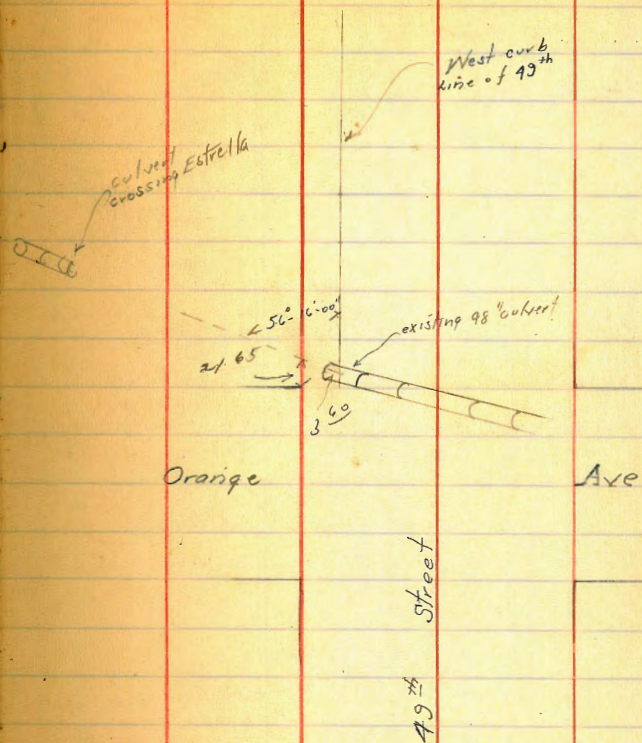 West curb
line of 49th
culvert
crossing Estrella
56°-16'-00"
existing 98" culvert
21.65
3 60
Orange
Ave
49th Street